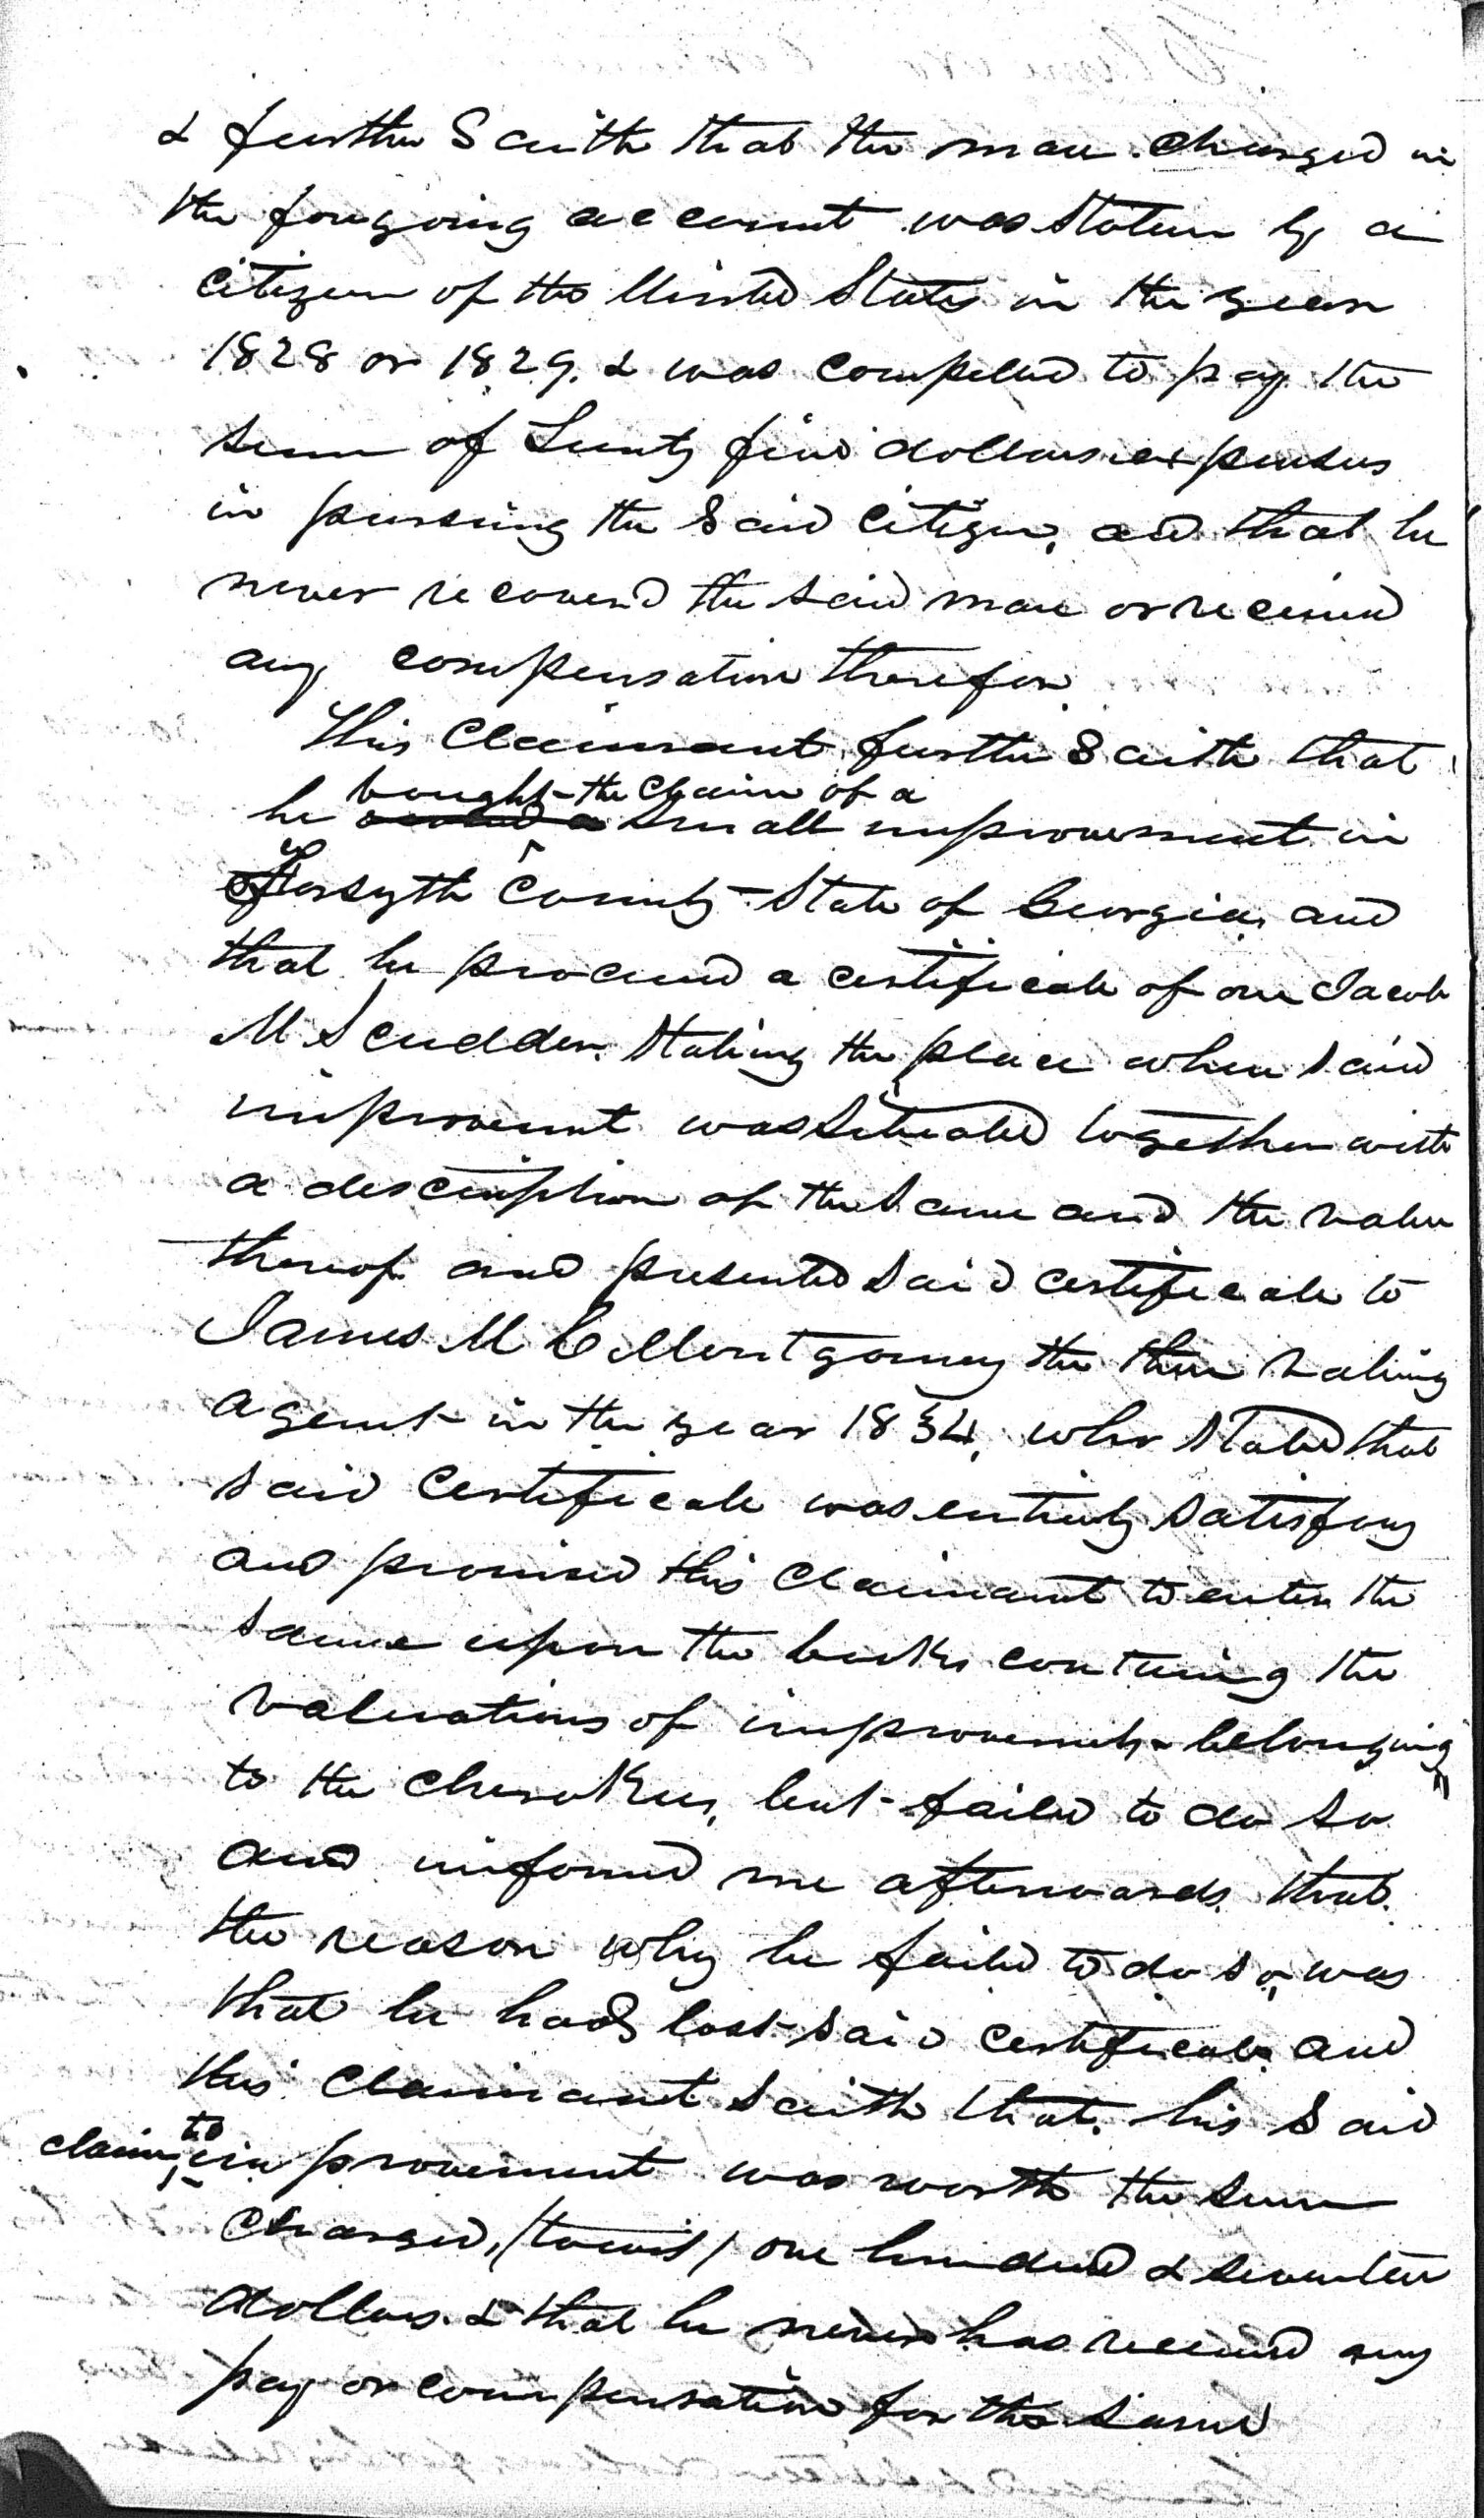 & further Saith that the mare charged in
the forgoing account was stolen by a
citizen of the United States in the year
1828 or 1829. & was compelled to pay the
sum of Twenty five dollars expenses
in pursuing the said citizen, and that he
never recovered the said mare or received
any compensation therefor
This Claimant further Saith that
bought the claim of a
he small improvement in
Forsyth County State of Georgia, and
that he procured a certificate of one Jacob
M Scudder. Stating the place where said
improvement was situated together with
a description of the same and the value
thereof. and presented said certificate to
James M C Montgomery the then valuing
agent in the year 1834, who stated that
said certificate was entirely satisfory
and promised this claimant to enter the
same upon the books containing the
valuations of improvements belonging
to the Cherokees, but failed to do so
and informed me afterwards. that
the reason why he failed to do so, was
that he had lost said certificate and
this Claimant saith that. his said
claim to improvement was worth the sum
charged, (towit) one hundred & seventeen
dollars. & that he never has received any
pay or compensation for the same